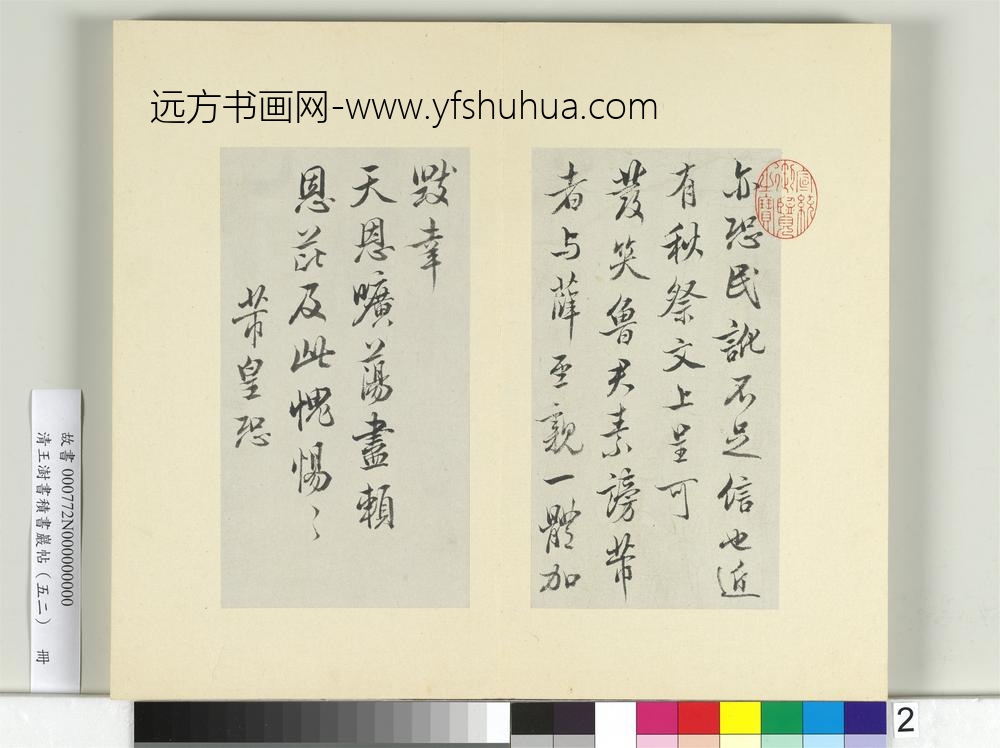 远方书画网-www.yfshuhua.com
宣統御覽之寶
亦恐民訛不足信也近
有秋祭文上呈可
發笑魯君素謗芾
者与薛至親一體加
毀幸
天恩曠蕩盡賴
恩芘及此愧惕〻
芾皇恐
故書 000772N000000000
清王澍書積書巖帖（五二） 冊
2